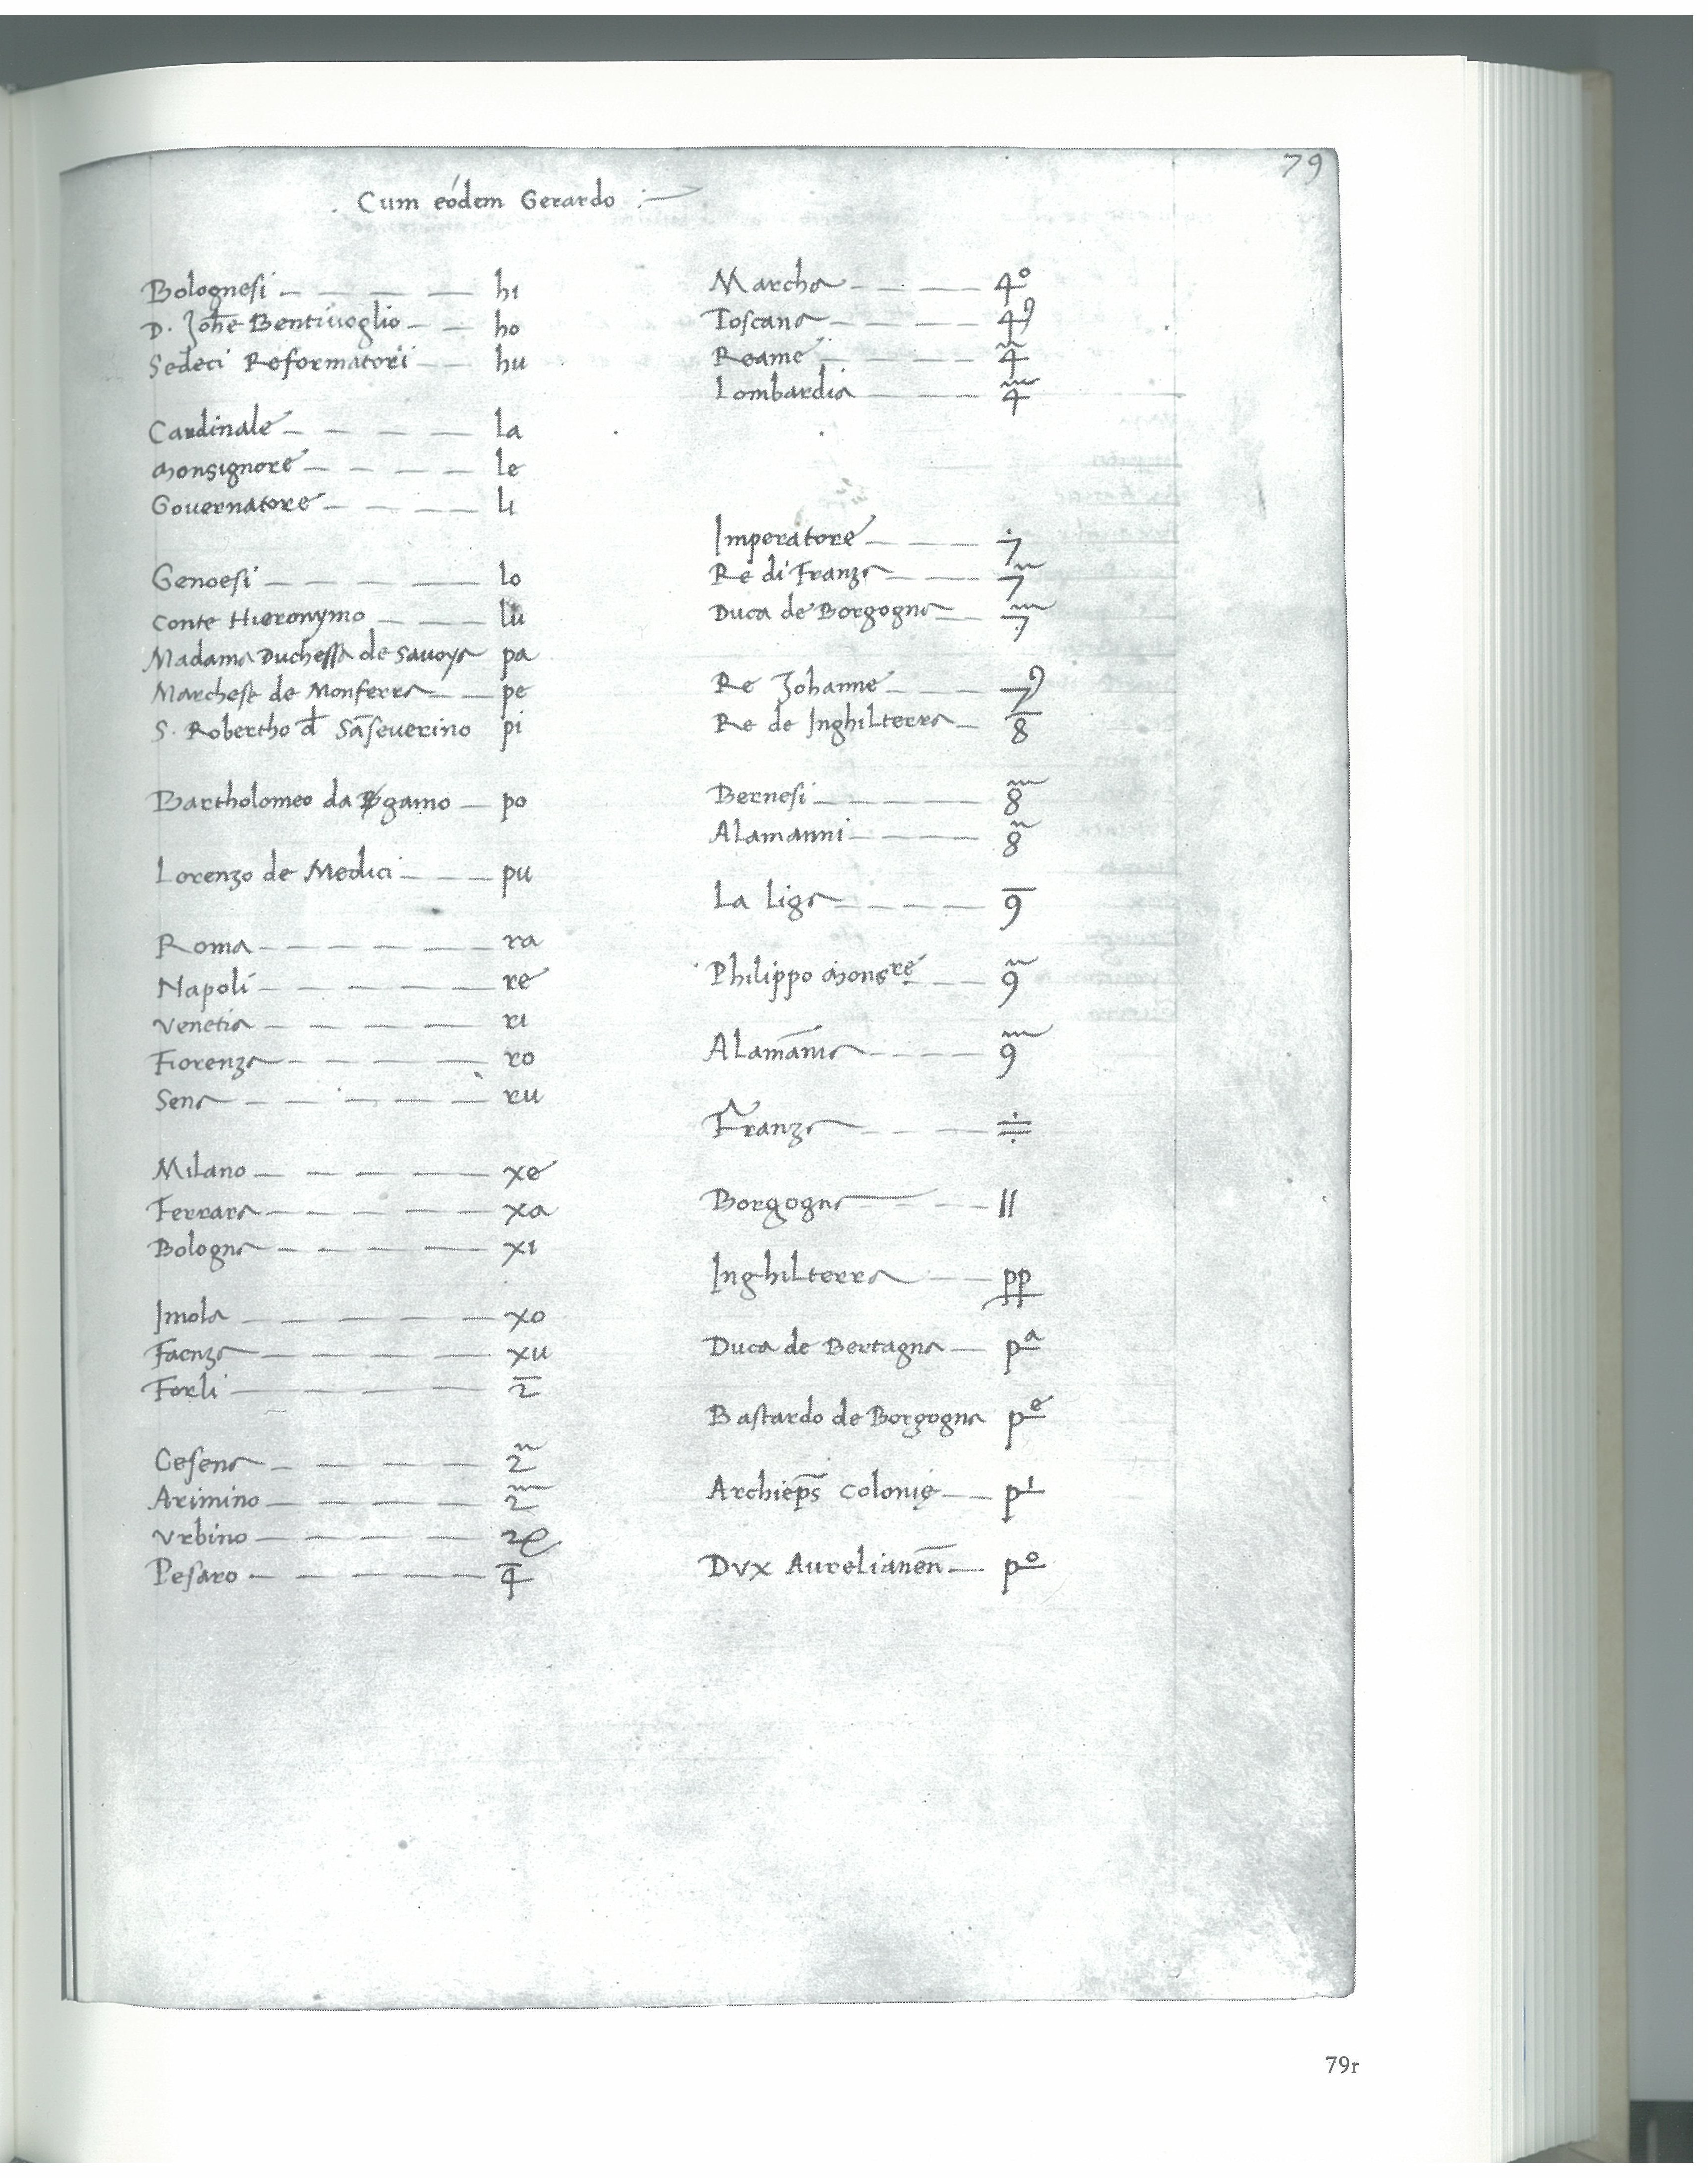 79
. Cum eódem Gerardo :—
Bolognesi — — — — hi
D. Johe Bentiuoglio — — ho
Sedeci Reformatori — — hu
Cardinale — — — — la
Monsignore — — — — le
Gouernatore — — — — li
Genoesi — — — — lo
Conte Hieronymo — — — lu
Madama Duchessa de Sauoya pa
Marchese de Monferra — — pe
S. Robertho d̵ Sāseuerino pi
Bartholomeo da Bꝑgamo — po
Lorenzo de Medici — — — pu
Roma — — — — — ra
Napoli — — — — — re
Venetia — — — — ri
Fiorenza — — — — ro
Sena — — — — — ru
Milano — — — — xe
Ferrara — — — — — xa
Bologna — — — — xi
Imola — — — — — xo
Faenza — — — — xu
Forli — — — — 2̅
Cesena — — — —
Arimino — — — —
Vrbino — — — —
Pesaro — — — — 4̅
Marcha — — — — 4º
Toscana — — — — 4⁹
Reame — — — —
Lombardia — — —
Imperatore — — —
Re di Franza — — —
Duca de Borgogna — —
Re Johanne — — — 7⁹
Re de Inghilterra — 8̅
Bernesi — — — —
Alamanni — — —
La liga — — — — 9̅
Philippo Monsre. — —
Alamānia — — —
Franza — — —
Borgogna — — — ||
Inghilterra — — pp
Duca de Bertagna — pª
Bastardo de Borgogna pᵉ
Archiep̄s Colonię — — pⁱ
Dvx Aurelianen̄ — pº
79r